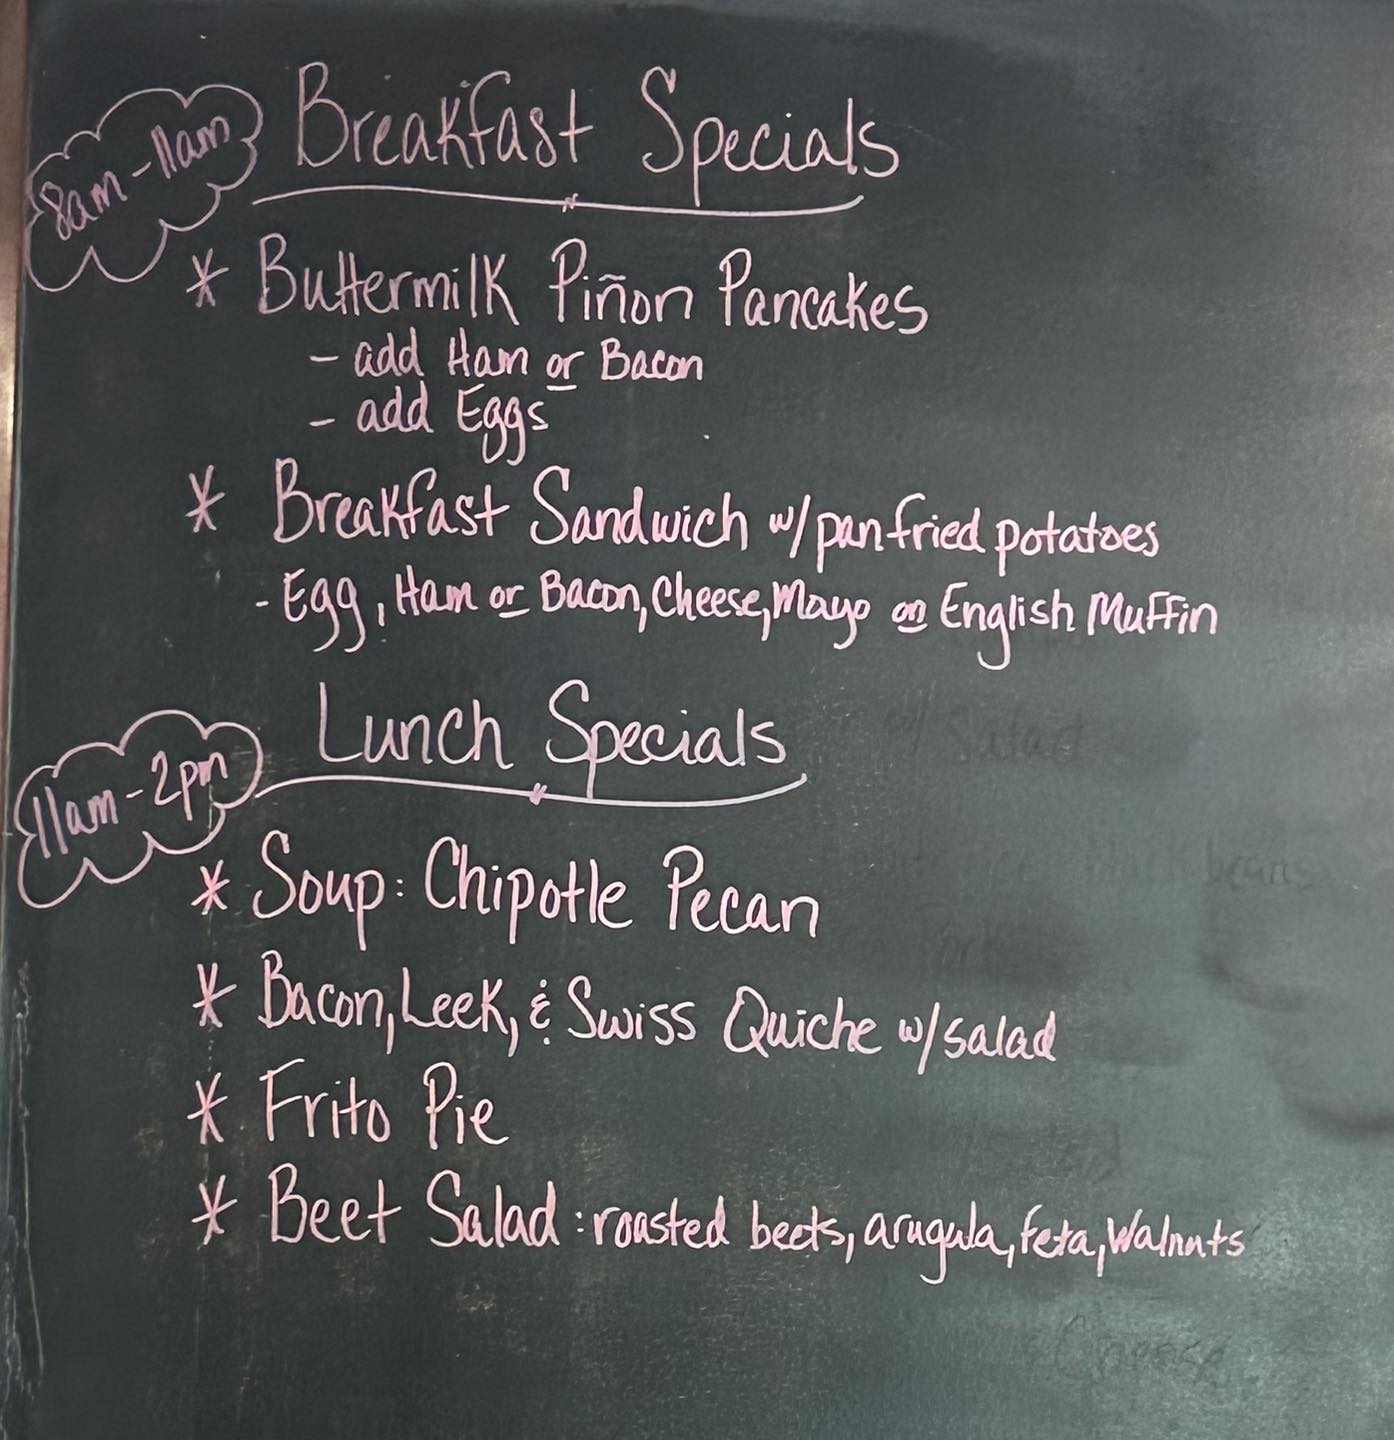 8am-11am
Breakfast Specials
* Buttermilk Piñon Pancakes
- add Ham or Bacon
- add Eggs
* Breakfast Sandwich w/ pan fried potatoes
- Egg, Ham or Bacon, Cheese, Mayo on English Muffin
11am-2pm
Lunch Specials
* Soup: Chipotle Pecan
* Bacon, Leek, & Swiss Quiche w/ salad
* Frito Pie
* Beet Salad: roasted beets, arugula, feta, Walnuts